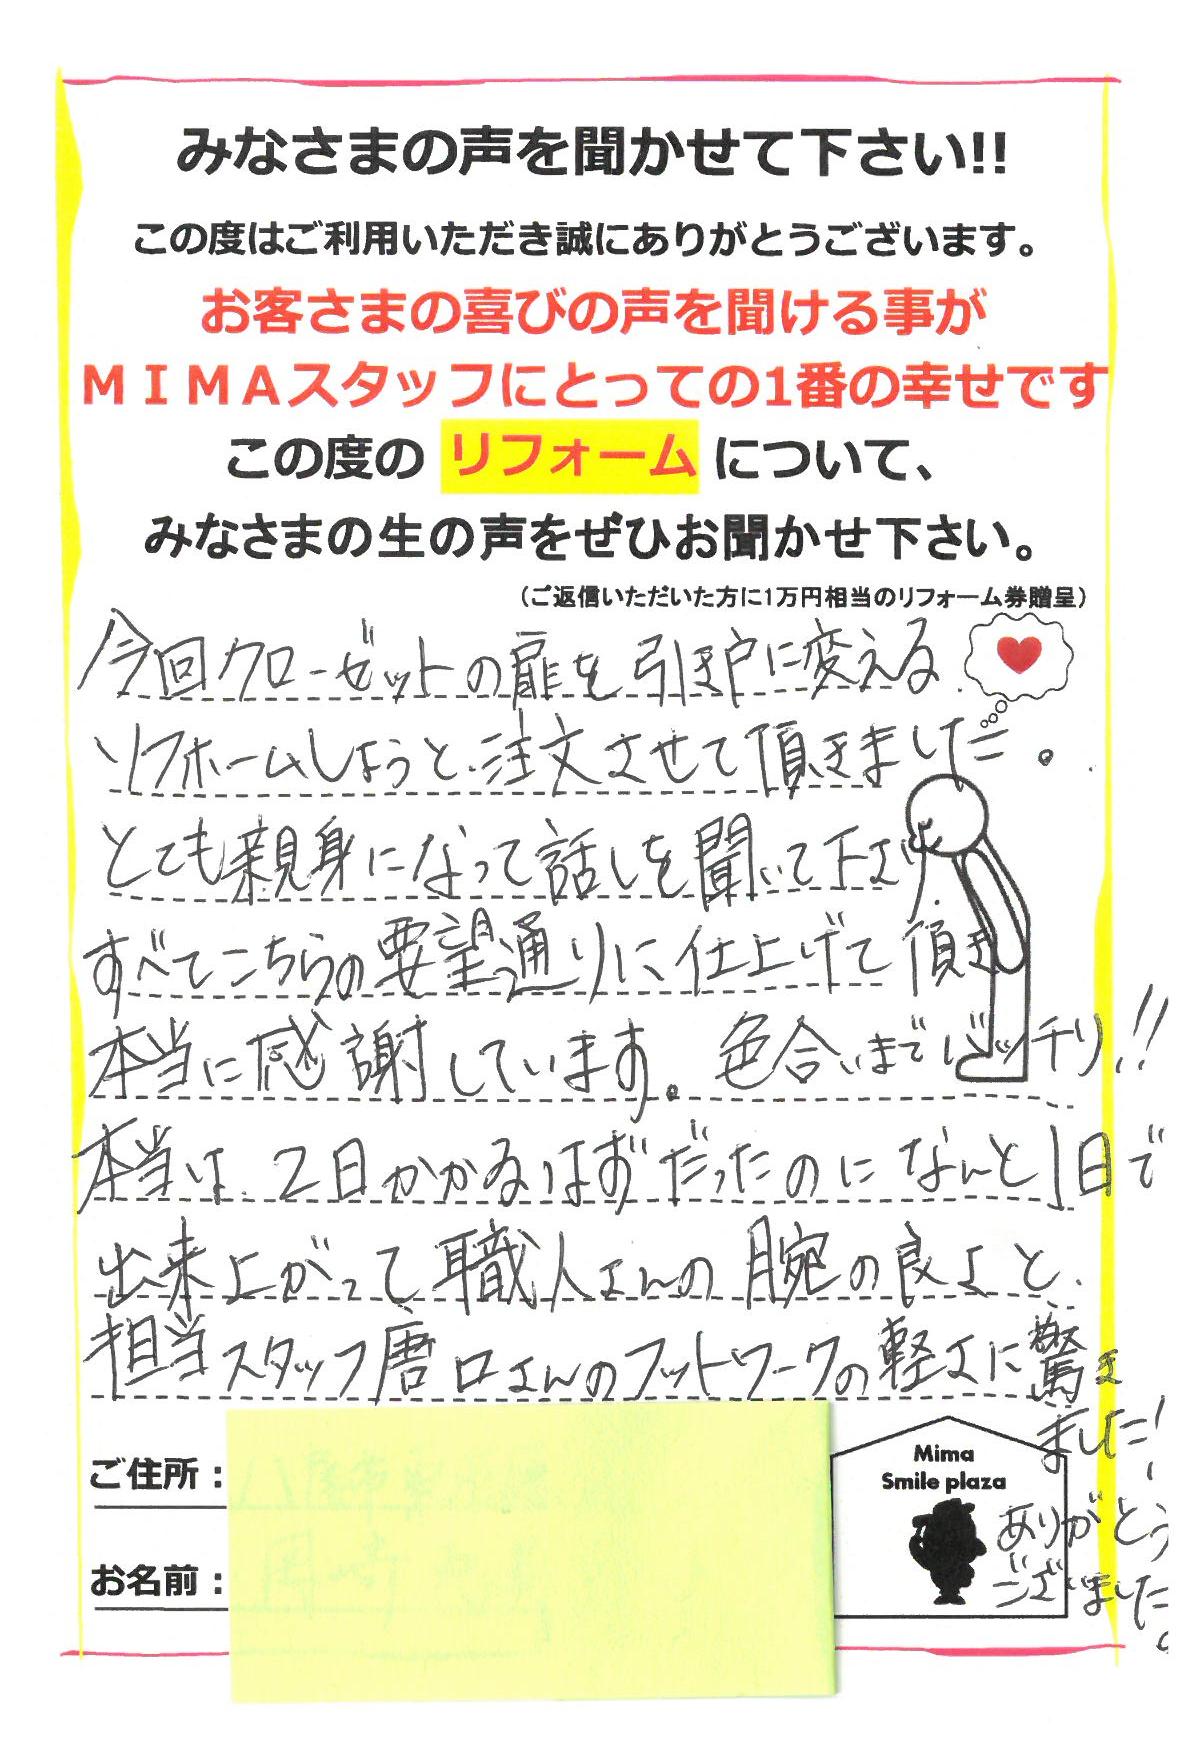 みなさまの声を聞かせて下さい!!
この度はご利用いただき誠にありがとうございます。
お客さまの喜びの声を聞ける事が
ＭＩＭＡスタッフにとっての1番の幸せです
この度の リフォーム について、
みなさまの生の声をぜひお聞かせ下さい。
（ご返信いただいた方に1万円相当のリフォーム券贈呈）
今回クローゼットの扉を引き戸に変える
リフォームしようと、注文させて頂きました。
とても親身になって話しを聞いて下さり
すべてこちらの要望通りに仕上げて頂き
本当に感謝しています。色合いまでバッチリ!!
本当は、2日かかるはずだったのになんと1日で
出来上がって職人さんの腕の良さと、
担当スタッフ唐口さんのフットワークの軽さに驚き
ました!
ありがとう
ございました。
ご住所：
お名前：
Mima
Smile plaza